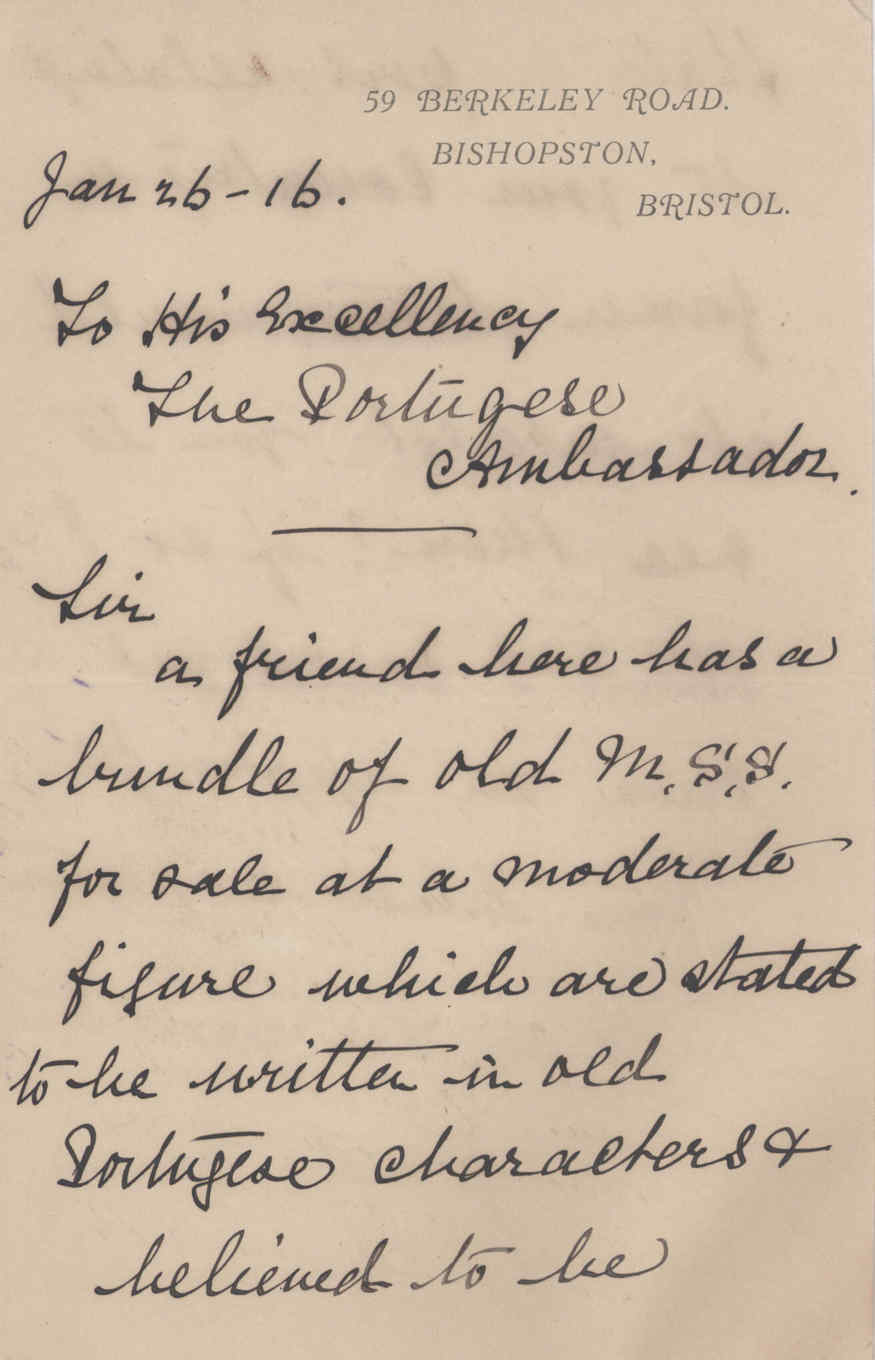 59 BERKELEY ROAD.
BISHOPSTON,
BRISTOL.
Jan 26-16.
To His Excellency
The Portugese
Ambassador.
Sir
a friend here has a
bundle of old M.S.S.
for sale at a moderate
figure which are stated
to be written in old
Portugese characters &
believed to be